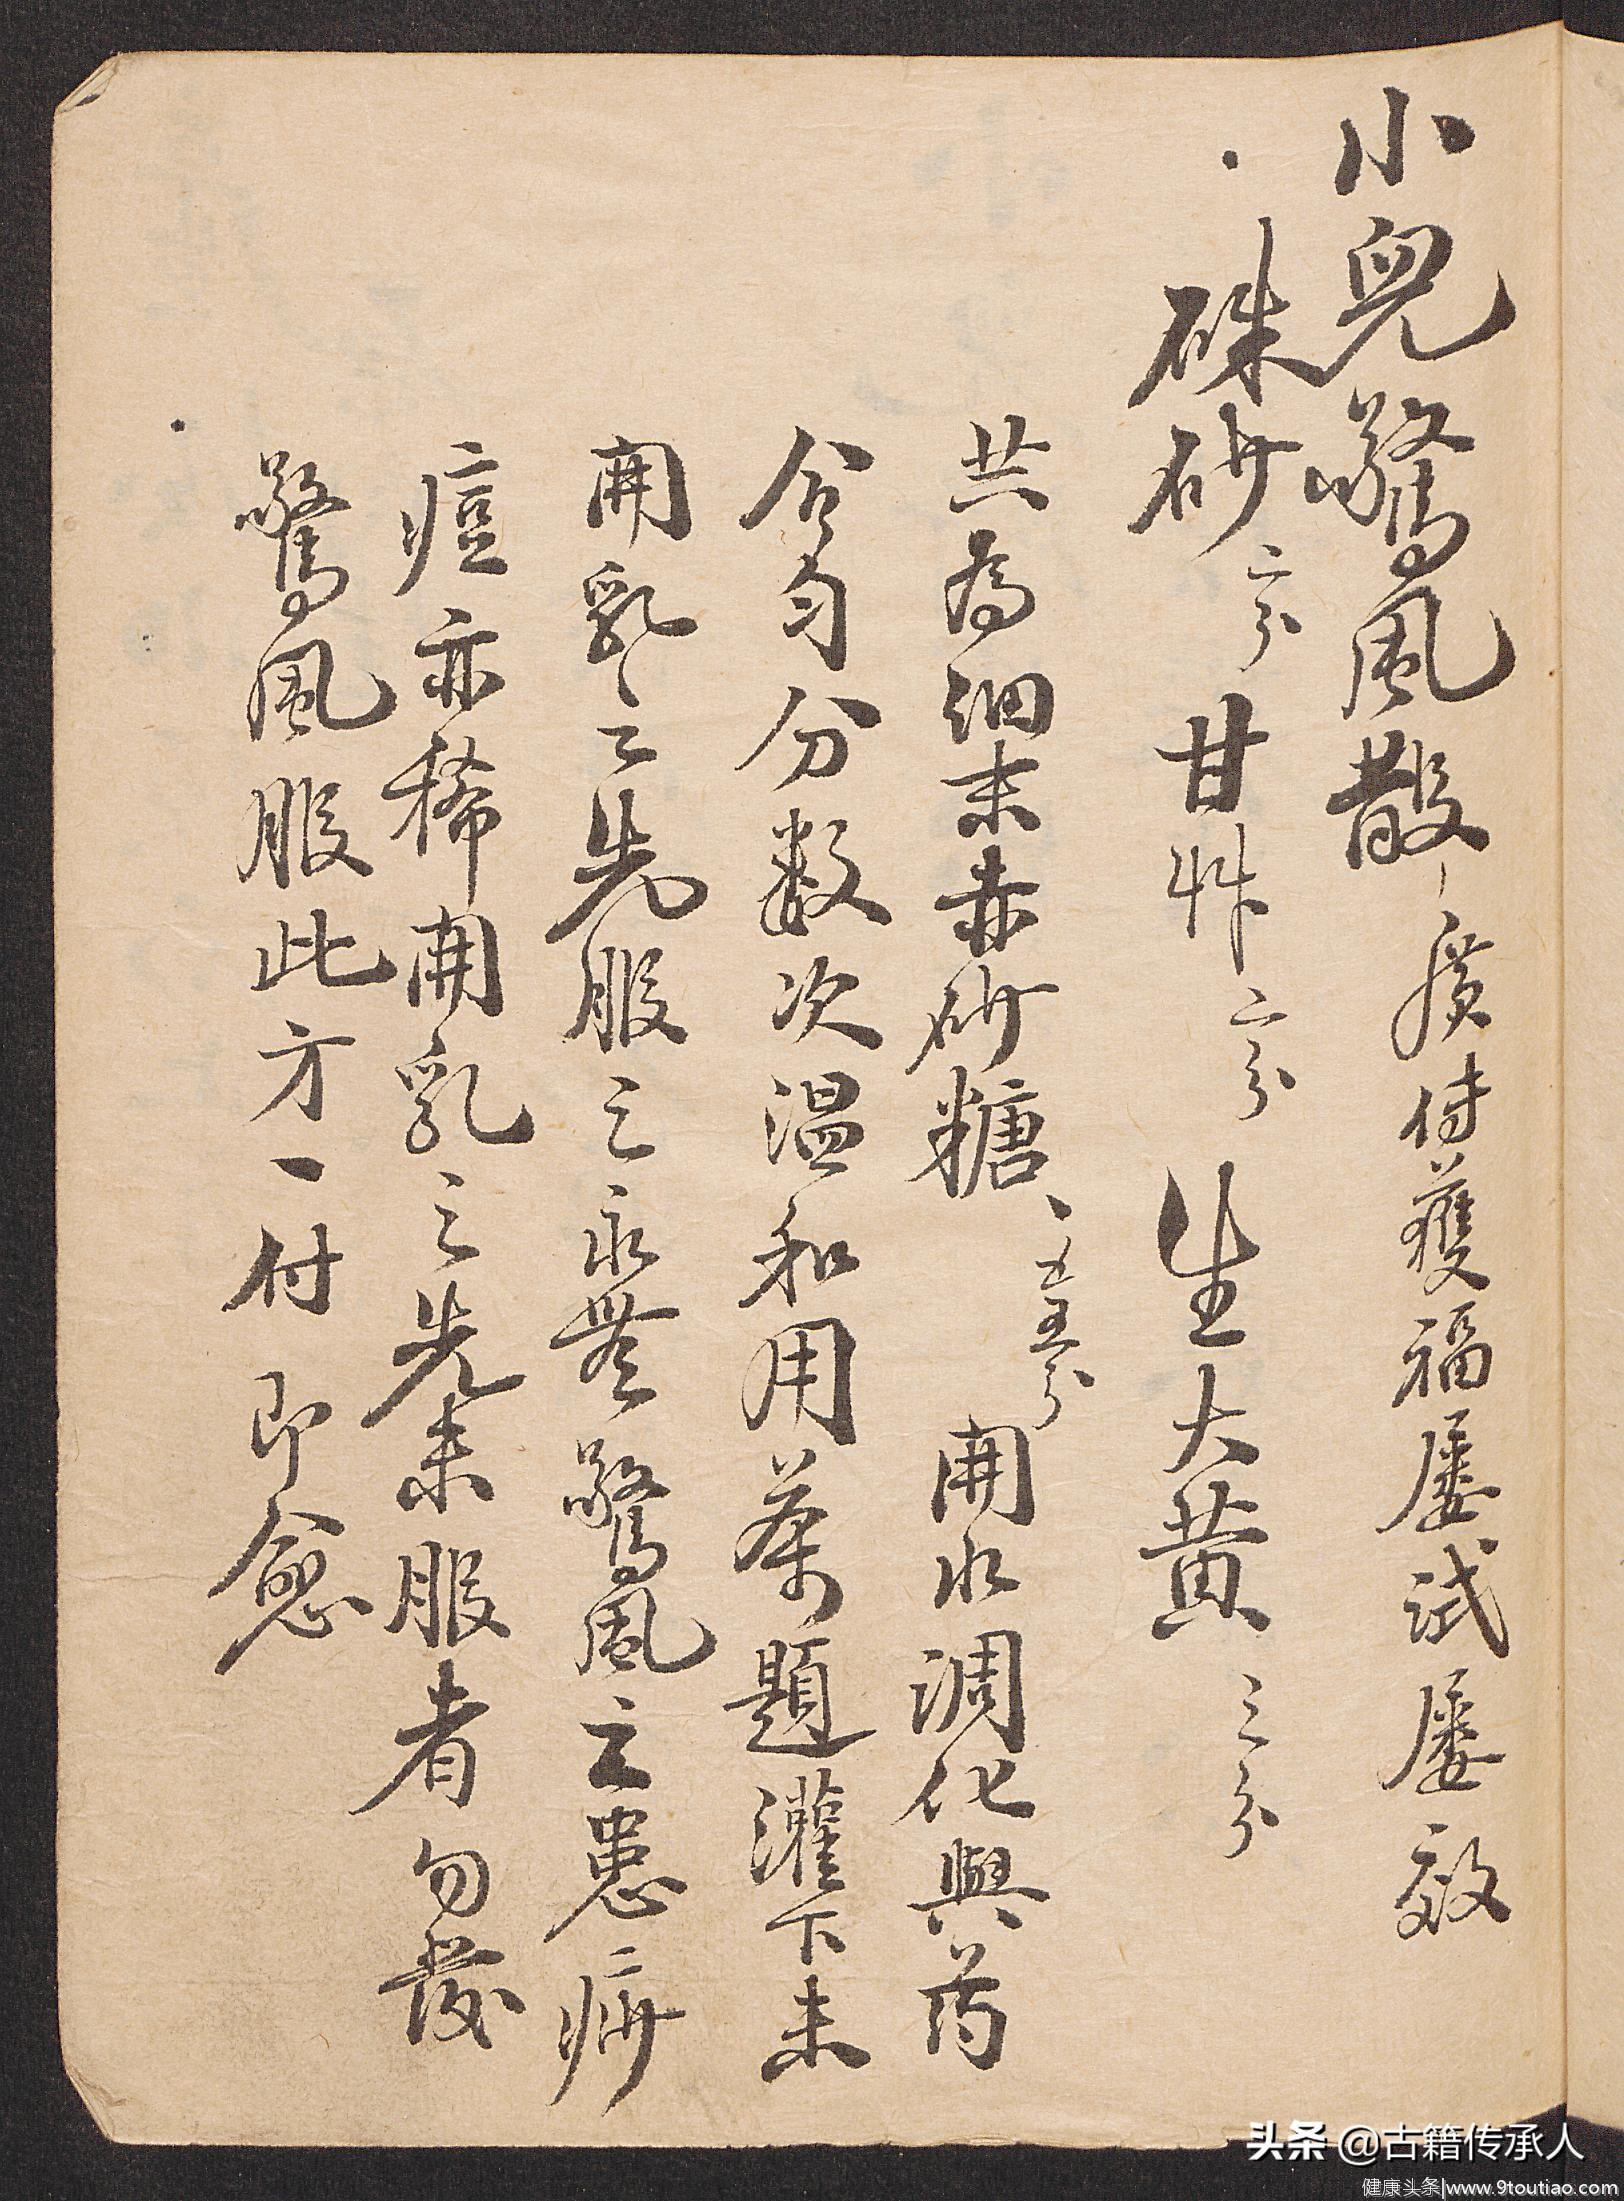 小兒驚風散 廣传獲福屢試屢效
硃砂二分 甘艸二分 生大黄三分
共為细末赤砂糖、五分 開水调化與药
合匀分数次温和用茶題灌下未
開乳之先服之永無驚風之患痧
痘亦稀開乳之先未服者勿發
驚風服此方一付即愈
头条 @古籍传承人
健康头条|www.9toutiao.com